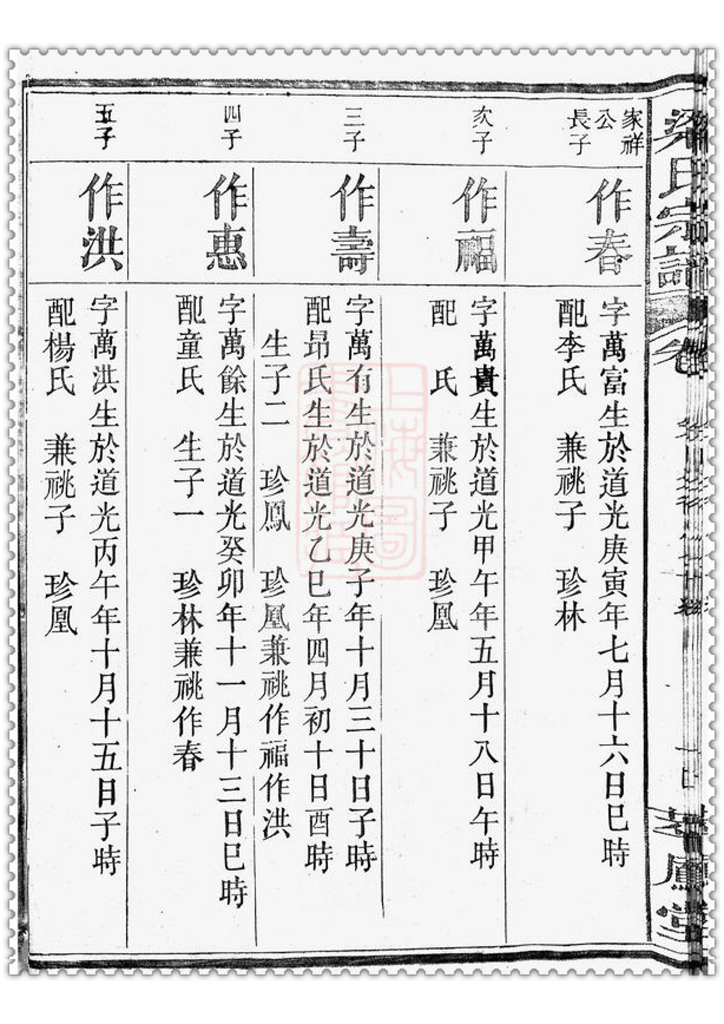 家祥
公
長子
作春
字萬富生於道光庚寅年七月十六日巳時
配李氏 兼祧子 珍林
次子
作福
字萬貴生於道光甲午年五月十八日午時
配 氏 兼祧子 珍凰
三子
作壽
字萬有生於道光庚子年十月三十日子時
配昂氏生於道光乙巳年四月初十日酉時
生子二 珍鳳 珍凰兼祧作福作洪
四子
作惠
字萬餘生於道光癸卯年十一月十三日巳時
配童氏 生子一 珍林兼祧作春
五子
作洪
字萬洪生於道光丙午年十月十五日子時
配楊氏 兼祧子 珍凰
氏宗譜
卷